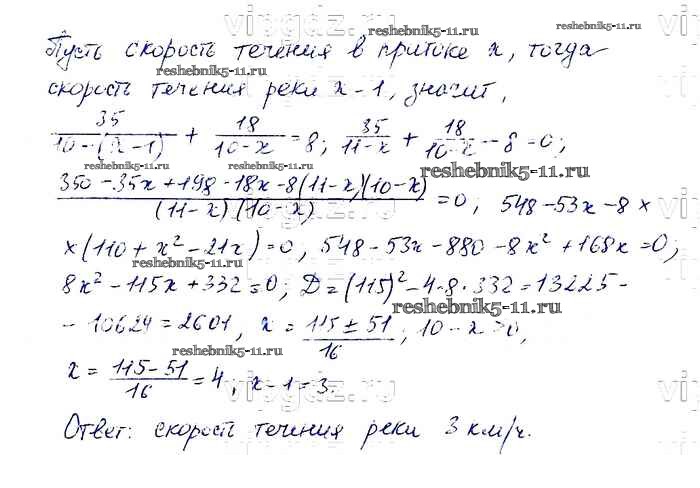 Пусть скорость течения в притоке x, тогда
скорость течения реки x-1, значит,
35/(10-(x-1)) + 18/(10-x) = 8; 35/(11-x) + 18/(10-x) - 8 = 0;
(350-35x+198-18x-8(11-x)(10-x))/((11-x)(10-x)) = 0, 548-53x-8×
×(110+x²-21x)=0, 548-53x-880-8x²+168x=0;
8x²-115x+332=0; D=(115)²-4·8·332=13225-
-10624=2601, x = (115±51)/16, 10-x>0,
x = (115-51)/16 = 4, x-1=3.
Ответ: скорость течения реки 3 км/ч.
vipgdz.ru
reshebnik5-11.ru
reshebnik5-11.ru
reshebnik5-11.ru
reshebnik5-11.ru
reshebnik5-11.ru
reshebnik5-11.ru
reshebnik5-11.ru
reshebnik5-11.ru
reshebnik5-11.ru
vipgdz.ru